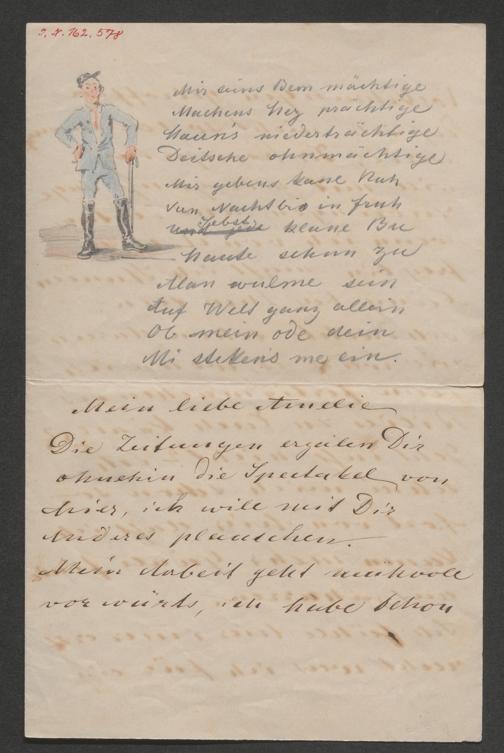 I. N. 162.578
Mir seins Dem mächtige
Machens Hez prächtige
Hauen's niederträchtige
Deitsche ohnmächtige
Mir gebens kane Ruh
Van Nacht bis in fruh
Selbst klane Bu
Haute schon zu
Alan wulme sein
Auf Welt ganz allein
Ob mein ode dein
Mi steken's me ein.
Mein liebe Amelie
Die Zeitungen erzälen Dir
ohnehin die Spectakel von
hier, ich will mit Dir
Anderes plauschen.
Mein Arbeit geht mühvoll
vorwärts, ich habe schon